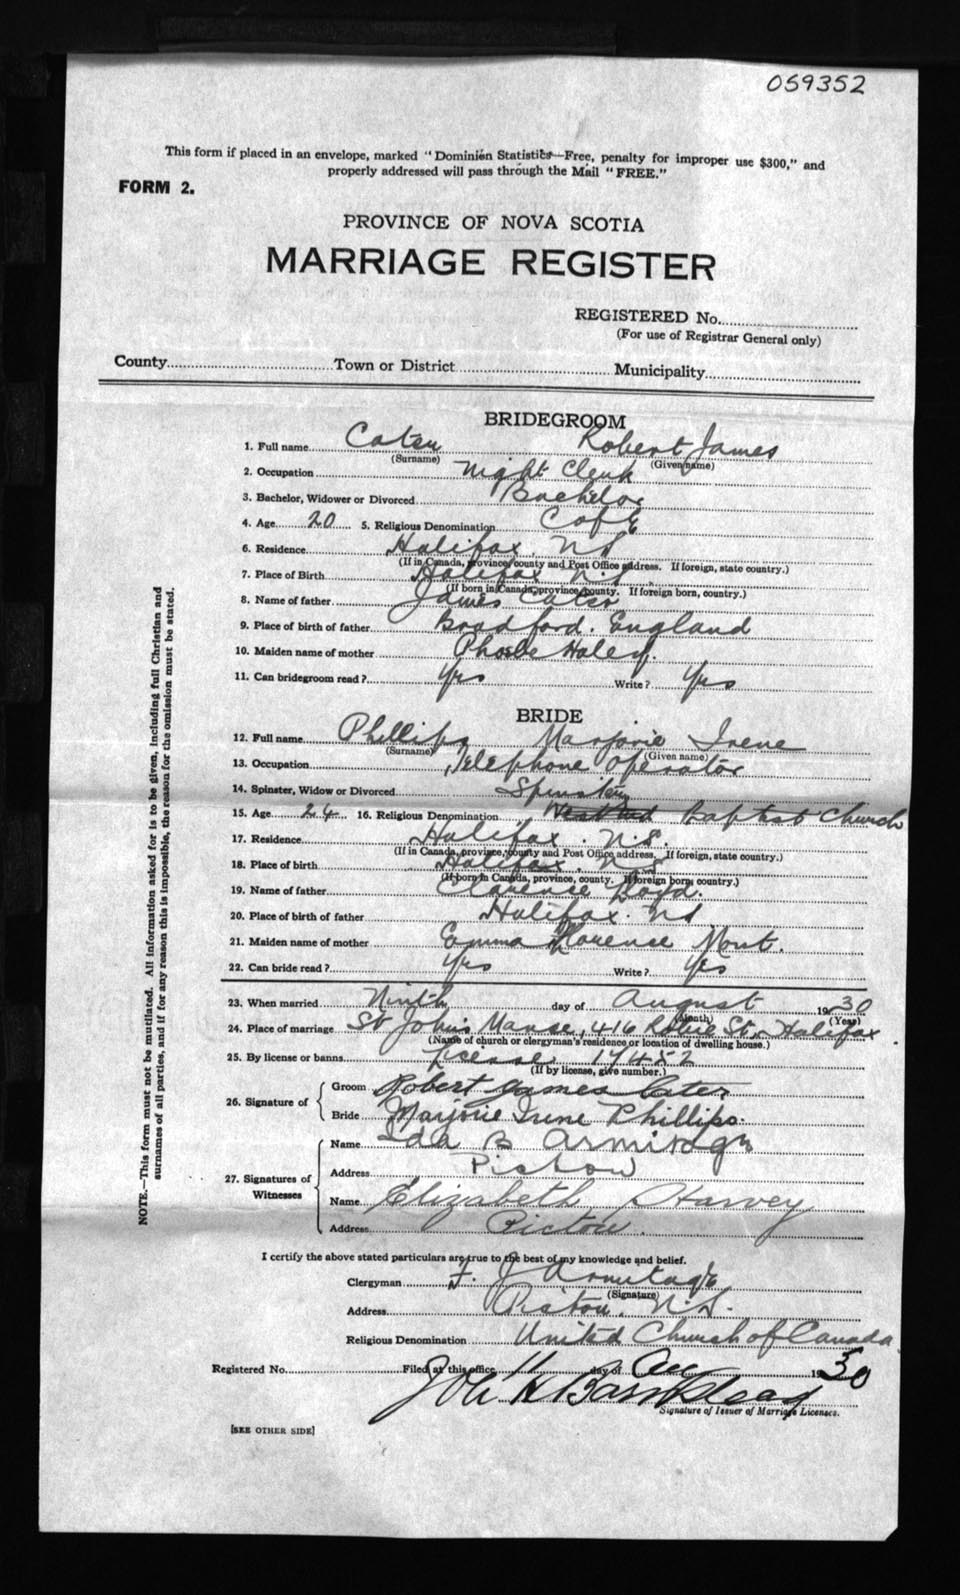 059352
This form if placed in an envelope, marked "Dominion Statistics—Free, penalty for improper use $300," and
properly addressed will pass through the Mail "FREE."
FORM 2.
PROVINCE OF NOVA SCOTIA
MARRIAGE REGISTER
REGISTERED No.
(For use of Registrar General only)
County Town or District Municipality
BRIDEGROOM
1. Full name Cater Robert James
(Surname) (Given name)
2. Occupation Night Clerk
3. Bachelor, Widower or Divorced Bachelor
4. Age 20 5. Religious Denomination C of E
6. Residence Halifax, NS
(If in Canada, province, county and Post Office address. If foreign, state country.)
7. Place of Birth Halifax N.S.
(If born in Canada, province, county. If foreign born, country.)
8. Name of father James Cater
9. Place of birth of father Bradford. England
10. Maiden name of mother Phoebe Haley.
11. Can bridegroom read? Yes Write? Yes
BRIDE
12. Full name Phillips Marjorie Irene
(Surname) (Given name)
13. Occupation Telephone Operator
14. Spinster, Widow or Divorced Spinster
15. Age 24 16. Religious Denomination West End Baptist Church
17. Residence Halifax N.S.
(If in Canada, province, county and Post Office address. If foreign, state country.)
18. Place of birth Halifax, N.S
(If born in Canada, province, county. If foreign born, country.)
19. Name of father Clarence Loyd.
20. Place of birth of father Halifax. NS
21. Maiden name of mother Emma Florence Mont.
22. Can bride read? Yes Write? Yes
23. When married Ninth day of August 1930
(Month) (Year)
24. Place of marriage St John's Manse, 416 Robie St, Halifax.
(Name of church or clergyman's residence or location of dwelling house.)
25. By license or banns License 17452
(If by license, give number.)
26. Signature of Groom Robert James Cater
Bride Marjorie Irene Phillips.
27. Signatures of Witnesses Name Ida B Armitage
Address Pictou
Name Elizabeth Harvey
Address Pictou.
I certify the above stated particulars are true to the best of my knowledge and belief.
Clergyman F. J Armitage
(Signature)
Address Pictou, N.S.
Religious Denomination United Church of Canada
Registered No. Filed at this office 11 day of Au 1930
H Barnstead
Signature of Issuer of Marriage Licenses.
[SEE OTHER SIDE]
NOTE.—This form must not be mutilated. All information asked for is to be given, including full Christian and
surnames of all parties, and if for any reason this is impossible, the reason for the omission must be stated.